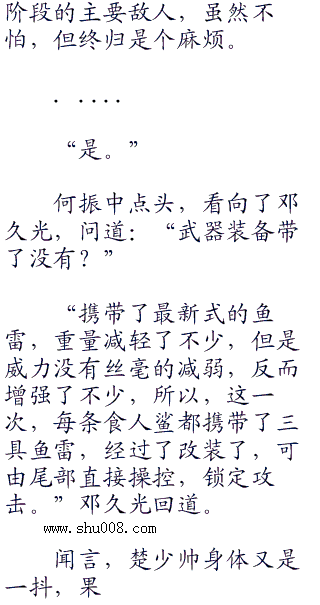 阶段的主要敌人，虽然不
怕，但终归是个麻烦。
. ....
“是。”
何振中点头，看向了邓
久光，问道：“武器装备带
了没有？”
“携带了最新式的鱼
雷，重量减轻了不少，但是
威力没有丝毫的减弱，反而
增强了不少，所以，这一
次，每条食人鲨都携带了三
具鱼雷，经过了改装了，可
由尾部直接操控，锁定攻
击。”邓久光回道。
www.shu008.com
闻言，楚少帅身体又是
一抖，果